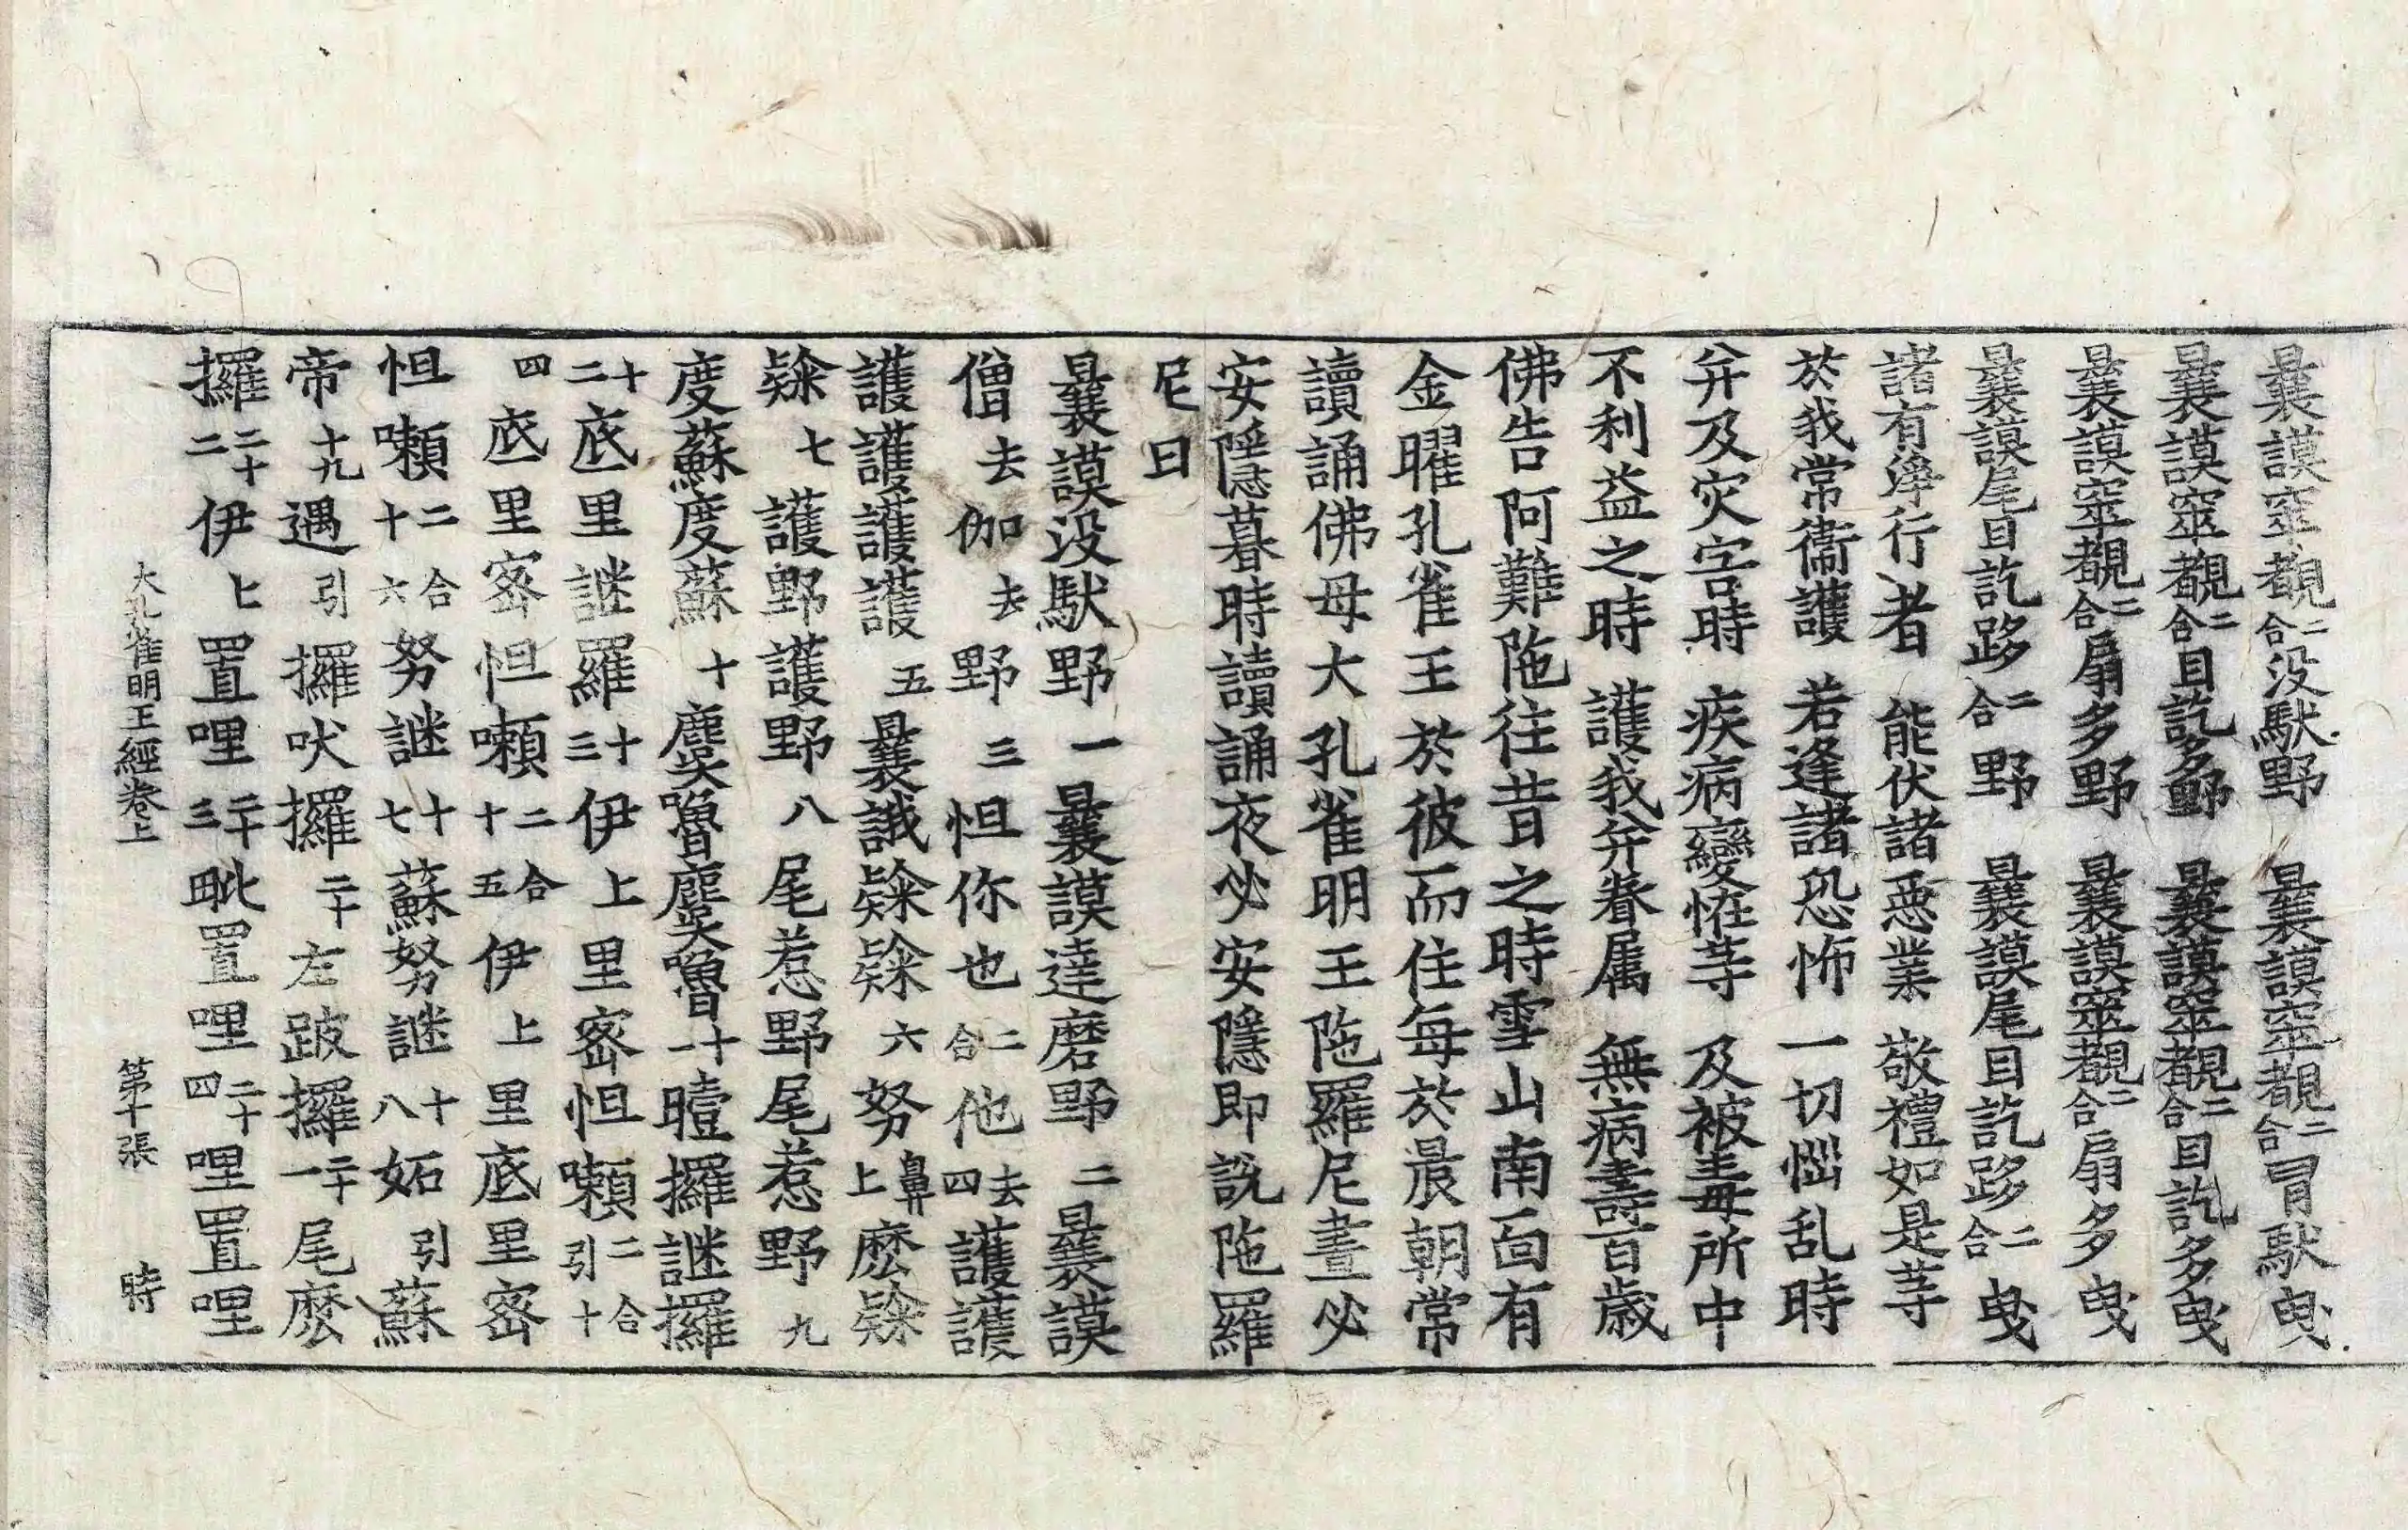 曩謨窣覩二合没馱野　曩謨窣覩二合冒馱曳
曩謨窣覩二合目訖多野　曩謨窣覩二合目訖多曳
曩謨窣覩二合扇多野　曩謨窣覩二合扇多曳
曩謨尾目訖跢二合野　曩謨尾目訖跢二合曳
諸有淨行者　能伏諸惡業　敬禮如是等
於我常衞護　若逢諸恐怖　一切惱乱時
并及灾害時　疾病變恠等　及被毒所中
不利益之時　護我并眷属　無病壽百歲
佛告阿難陁往昔之時雪山南面有
金曜孔雀王於彼而住每於晨朝常
讀誦佛母大孔雀明王陁羅尼晝必
安隱暮時讀誦夜必安隱即說陁羅
尼曰
曩謨没馱野一曩謨達磨野二曩謨
僧去伽去野三怛你也二合他去四護護
護護護護五曩誐㘑㘑六努鼻上麽㘑
㘑七護野護野八尾惹野尾惹野九
度蘇度蘇十麌嚕麌嚕十一瞪攞謎攞
十二底里謎羅十三伊上里密怛囇二合引十
四底里密怛囇二合十五伊上里底里密
怛囇二合十六努謎十七蘇努謎十八妬引蘇
帝十九遇引攞吠攞二十左跛攞二十一尾麽
攞二十二伊上置哩二十三毗置哩二十四哩置哩
大孔雀明王經卷上　第十張　時